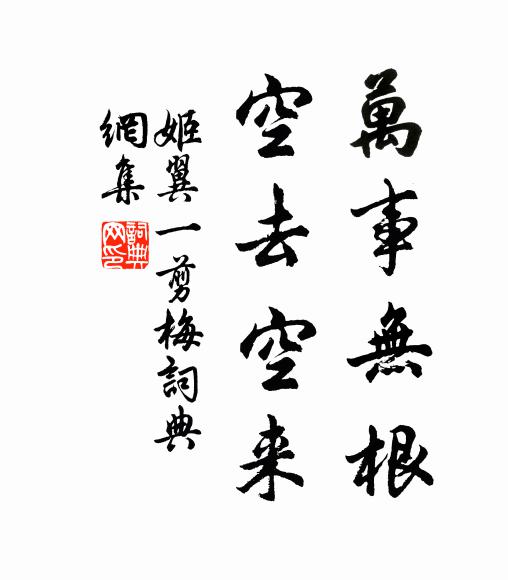 萬事無根
空去空来
姬翼一剪梅詞典
網集
詞典
网印